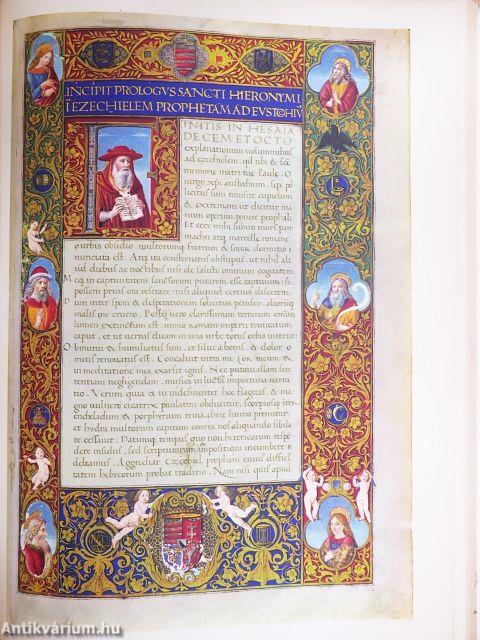 INCIPIT PROLOGVS SANCTI HIERONYMI
I EZECHIELEM PROPHETAM AD EVSTOHIV
INITIS IN HESAIA
DECEM ET OCTO
explanationum voluminibus
ad ezechielem
memorie matri tue Paule
virgo xpi
plicitus sum transire cupidum
& extremam ut dicitur ma
num operi imponere prophali
Et ecce mihi subito mors pam
machii atq marcelle romane
urbis obsidio multorumq fratrum & soror dormitio
nunciata est. Atq ita consternatus obstupui, ut nihil ali
ud diebus ac noctibus nisi de salute omnium cogitarem
in captivitatem sanctorum putarem esse captivum
possem prius ora reserare nisi aliquid certius discerem
Dum inter spem & desperationem solicitus pendeo, aliorumq
malis me crucio. Postquam vero clarissimum terrarum omniu
lumen extinctum est, immo romani imperii truncatum
caput, et ut verius dicam in una urbe totus orbis interiit
Obmutui & humiliatus sum, et silui a bonis, & dolor
meus renovatus est. Concaluit intra me cor meum &
in meditatione mea exarsit ignis. Nec putavi illam sen
tentiam negligendam, musica in luctu importuna narra
tio. Verum quia et tu indesinenter hoc flagitas, & ma
gno vulneri cicatrix paulatim obducitur, scorpiusq inter
enceladum & porphyrium trina cirine humo premitur,
et hydra multorum capitum contra nos aliquando sibila
te cessavit. Datumq tempus quo non hereticorum respo
dere insidiis, sed scripturarum expositioni incumbere
debeamus. Aggrediar Ezechiel propham cuius difficul
tatem hebreorum probat traditio. Nam nisi quis apud
Antikvárium.hu